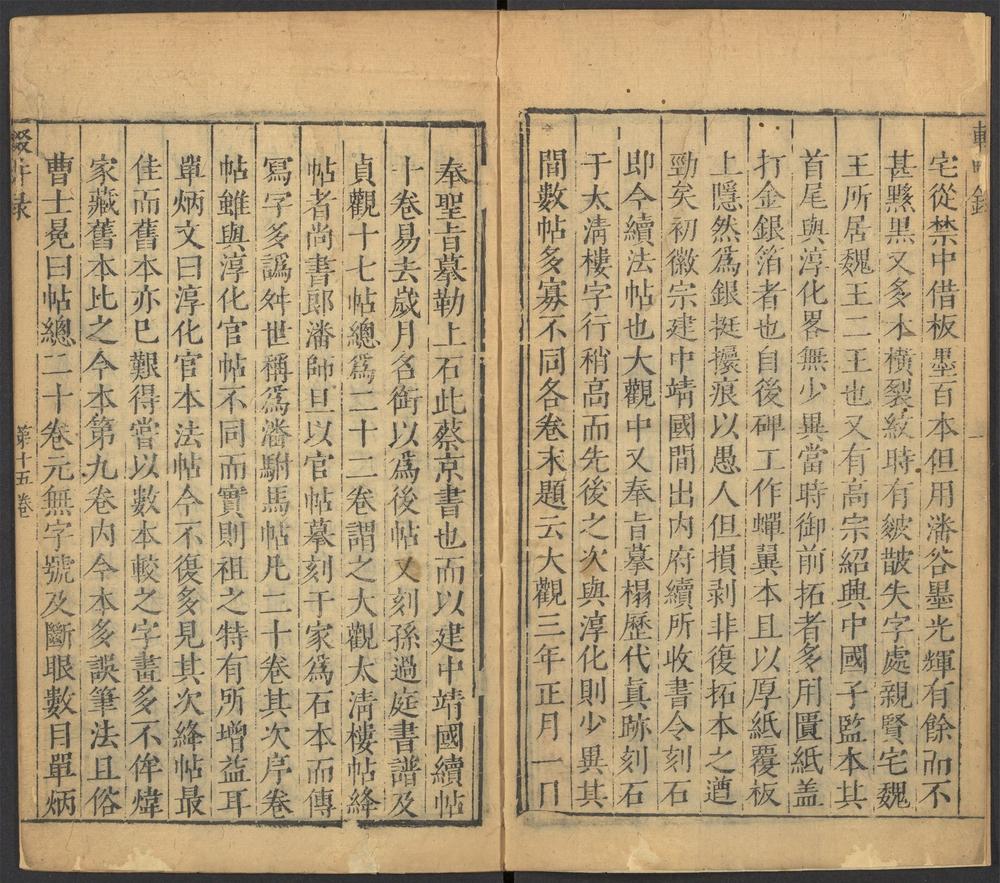 宅從禁中借板墨百本但用潘谷墨光輝有餘而不
甚黟黑又多木橫裂紋時有皴皵失字處親賢宅魏
王所居魏王二王也又有高宗紹興中國子監本其
首尾與淳化畧無少異當時御前拓者多用匱紙盖
打金銀箔者也自後碑工作蟬翼本且以厚紙覆板
上隱然爲銀挺𢷬痕以愚人但損剥非復拓本之遒
勁矣初徽宗建中靖國間出内府續所收書令刻石
即今續法帖也大觀中又奉㫖摹榻歷代眞跡刻石
于太清樓字行稍高而先後之次與淳化則少異其
間數帖多寡不同各卷末題云大觀三年正月一日
奉聖㫖摹勒上石此蔡京書也而以建中靖國續帖
十卷易去歲月名銜以爲後帖又刻孫過庭書譜及
貞觀十七帖總爲二十二卷謂之大觀太清樓帖絳
帖者尚書郎潘師旦以官帖摹刻于家爲石本而傳
寫字多譌舛世稱爲潘駙馬帖凡二十卷其次序卷
帖雖與淳化官帖不同而實則祖之特有所增益耳
單炳文曰淳化官本法帖今不復多見其次絳帖最
佳而舊本亦已艱得嘗以數本較之字畫多不侔煒
家藏舊本比之今本第九卷内今本多誤筆法且俗
曹士冕曰帖總二十卷元無字號及斷眼數目單炳
輟畊录
第十五卷